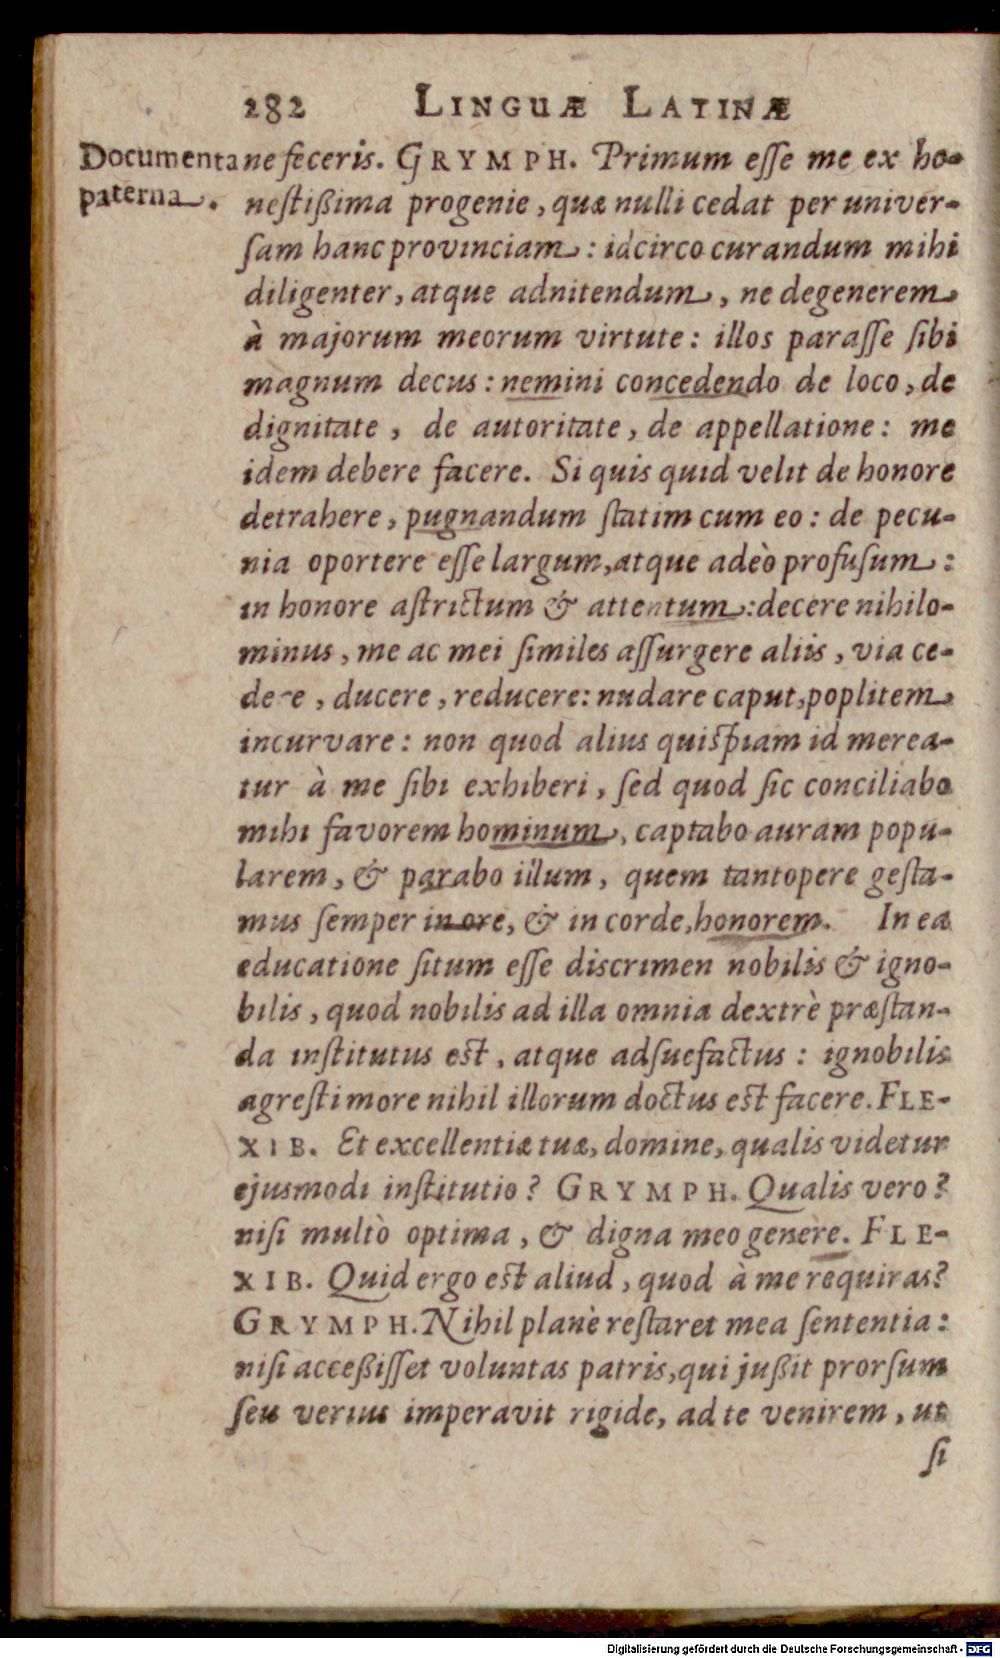 282 LINGUÆ LATINÆ
Documenta
paterna.
ne feceris. GRYMPH. Primum eſſe me ex ho-
neſtißima progenie, quæ nulli cedat per univer-
ſam hanc provinciam: idcirco curandum mihi
diligenter, atque adnitendum, ne degenerem
à majorum meorum virtute: illos paraſſe ſibi
magnum decus: nemini concedendo de loco, de
dignitate, de autoritate, de appellatione: me
idem debere facere. Si quis quid velit de honore
detrahere, pugnandum ſtatim cum eo: de pecu-
nia oportere eſſe largum, atque adeò profuſum:
in honore aſtrictum & attentum: decere nihilo-
minus, me ac mei ſimiles aſſurgere aliis, via ce-
dere, ducere, reducere: nudare caput, poplitem
incurvare: non quod alius quiſpiam id merea-
tur à me ſibi exhiberi, ſed quod ſic conciliabo
mihi favorem hominum, captabo auram popu-
larem, & parabo illum, quem tantopere geſta-
mus ſemper in ore, & in corde, honorem. In ea
educatione ſitum eſſe discrimen nobilis & igno-
bilis, quod nobilis ad illa omnia dextrè præſtan-
da inſtitutus eſt, atque adſuefactus: ignobilis
agreſti more nihil illorum doctus eſt facere. FLE-
XIB. Et excellentiæ tuæ, domine, qualis videtur
ejusmodi inſtitutio? GRYMPH. Qualis vero?
niſi multò optima, & digna meo genere. FLE-
XIB. Quid ergo eſt aliud, quod à me requiras?
GRYMPH. Nihil planè reſtaret mea ſententia:
niſi acceßiſſet voluntas patris, qui jußit prorſum
ſeu verius imperavit rigide, ad te venirem, ut
ſi
Digitalisierung gefördert durch die Deutsche Forschungsgemeinschaft - DFG